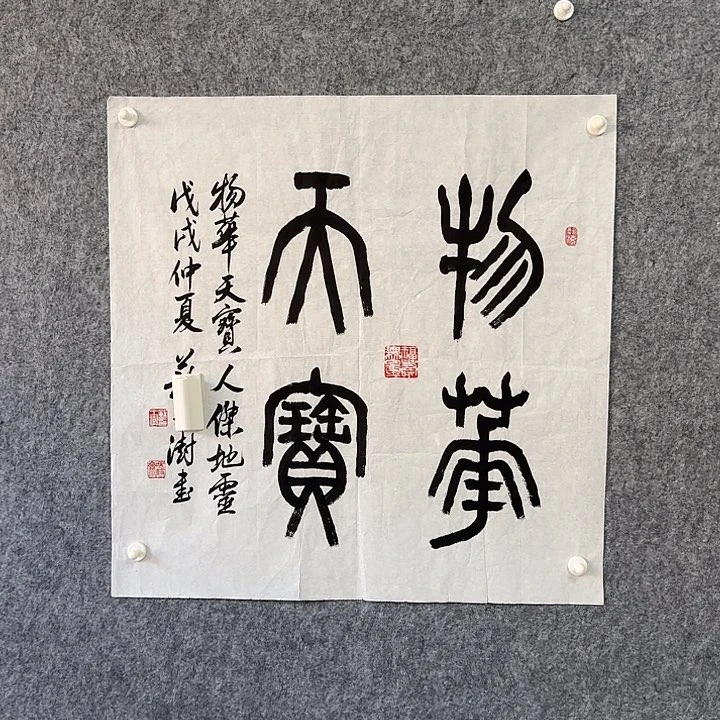 物華
天寶
物華天寶人傑地靈
戊戌仲夏
澍書